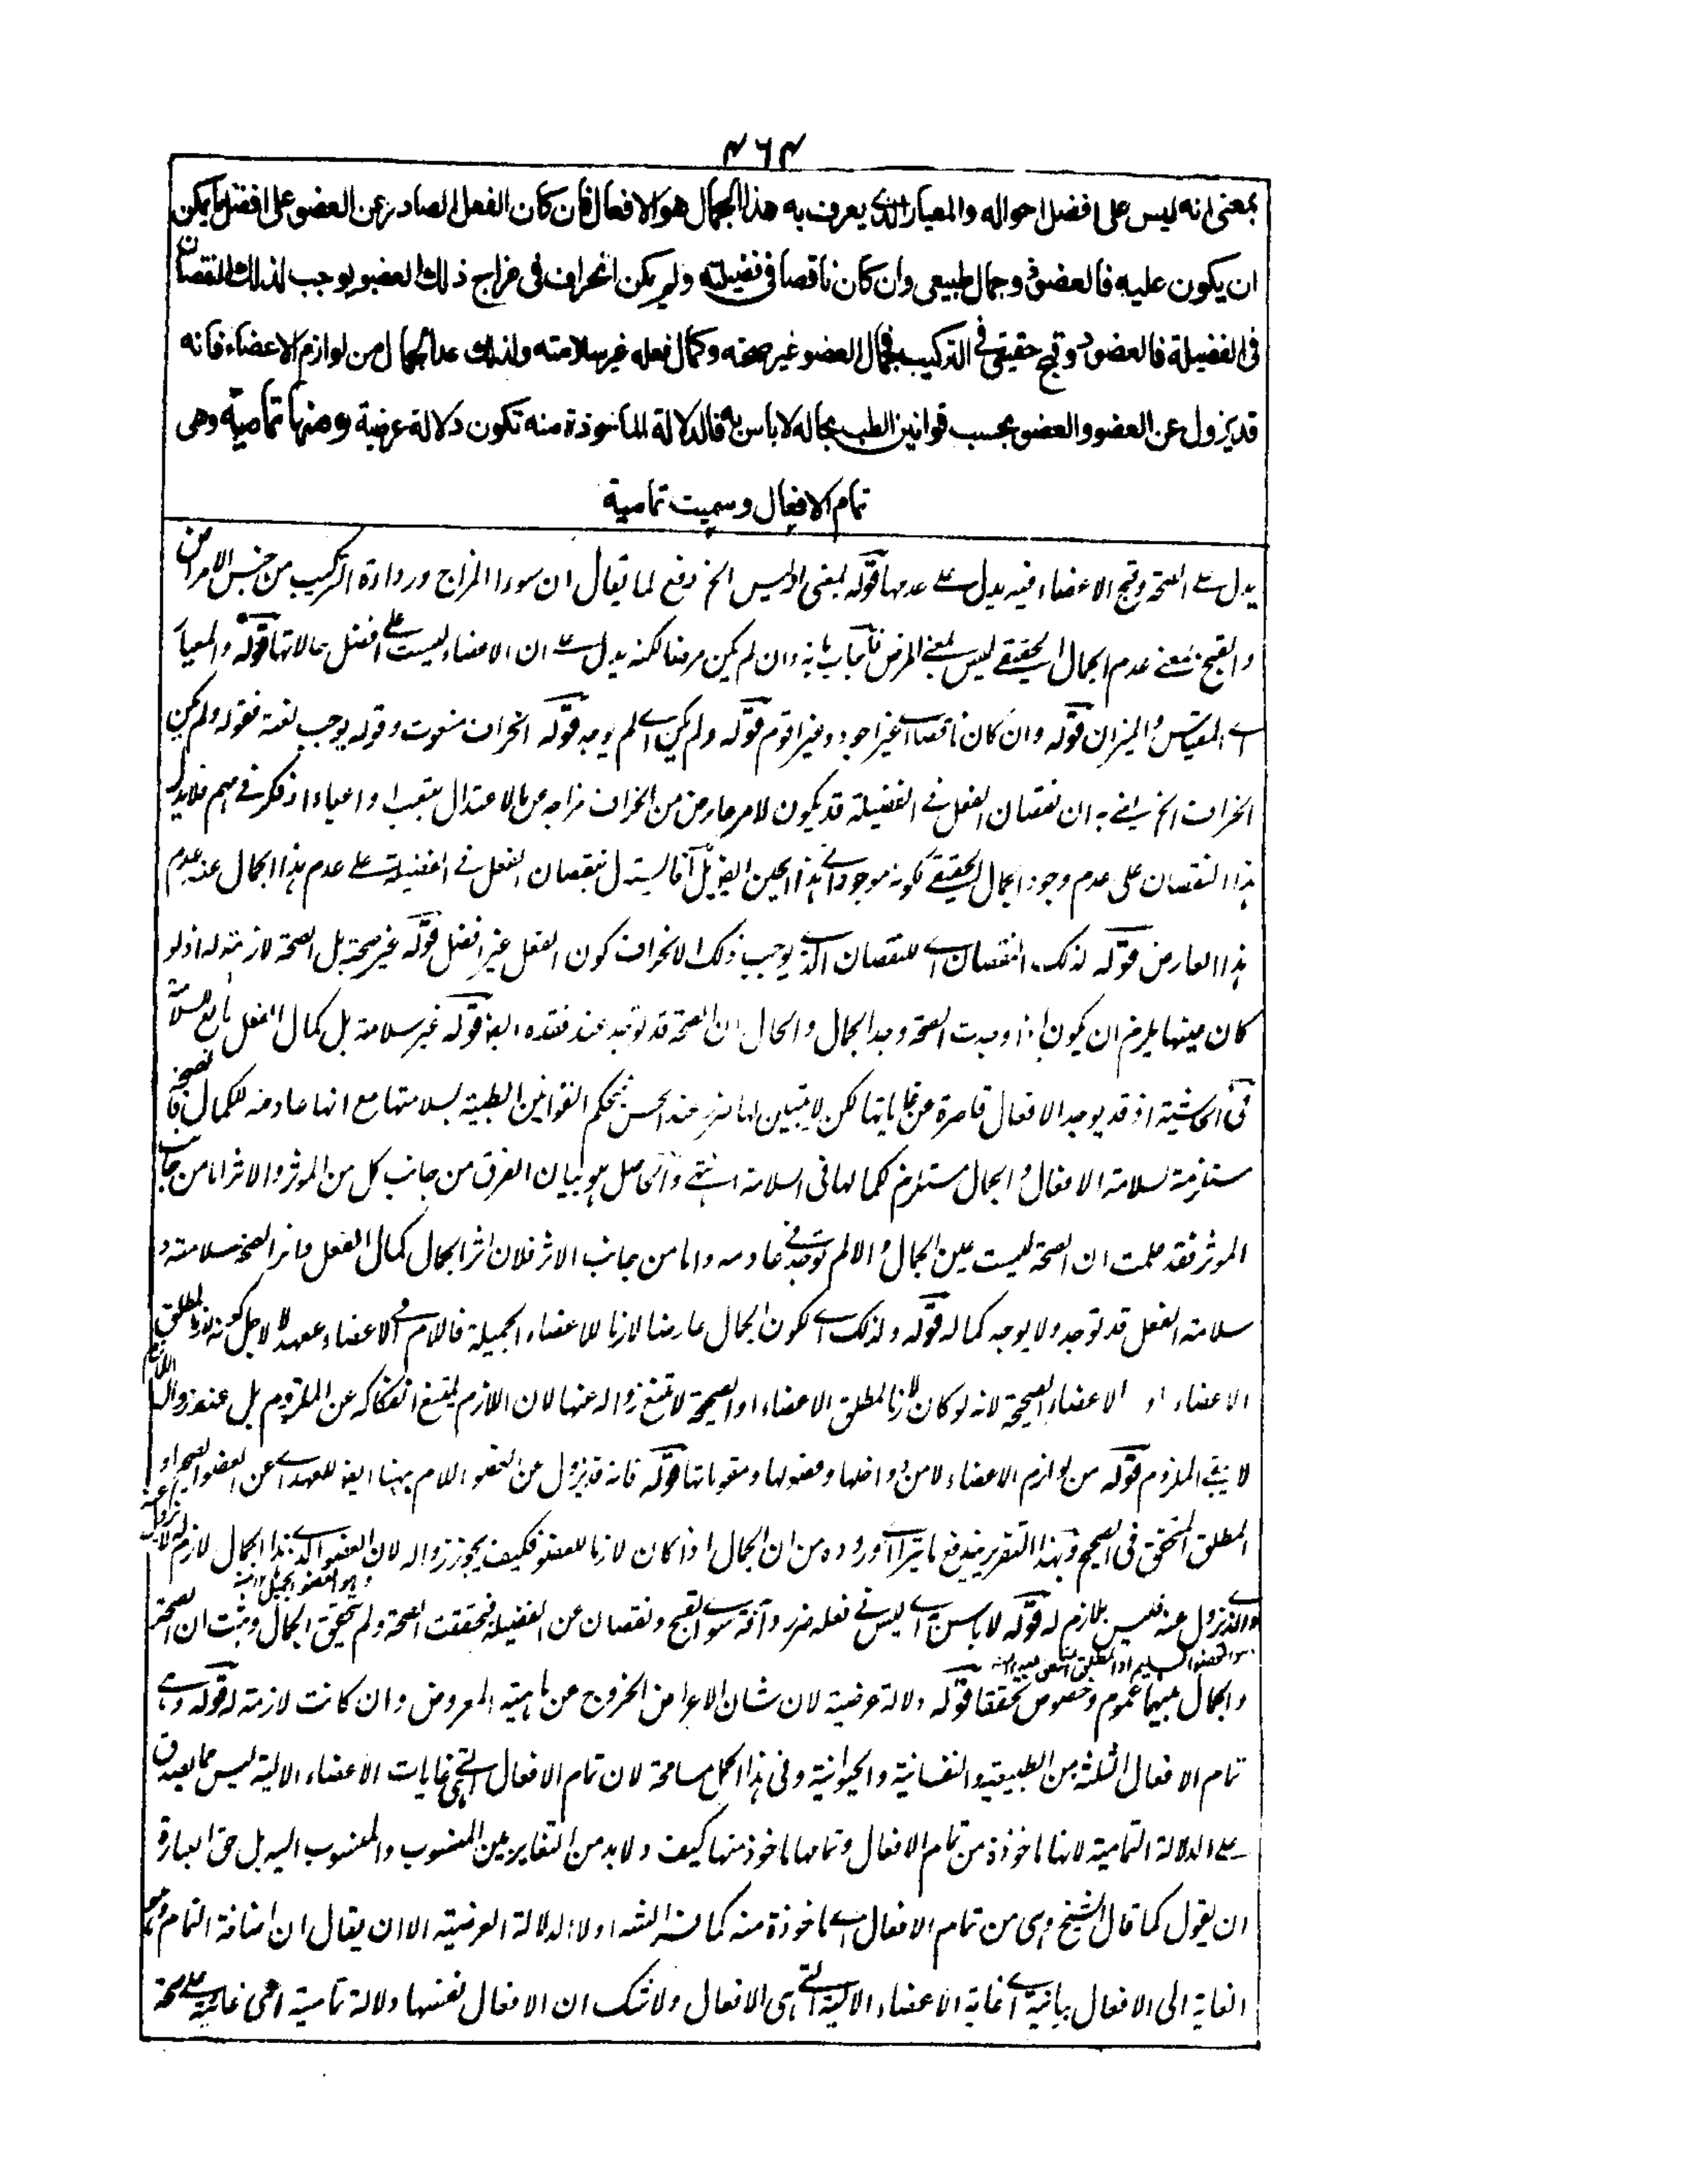 ۴۶۴
بمعنی انه ليس على افضل احواله والمعيار الذی يعرف به هذا الجمال هو الافعال فان كان الفعل الصادر عن العضو على افضل ما يمكن
ان يكون عليه فالعضو ذو جمال طبيعی وان كان ناقصا فی فضيلته ولم يكن انحراف فی مزاج ذلك العضو يوجب لذلك النقصان
فی الفضيلة فالعضو ذو قبح حقيقی فی التركيب فجمال العضو غير صحته وكمال فعله غير سلامته ولذلك عد الجمال من لوازم الاعضاء فانه
قد يزول عن العضو والعضو بحسب قوانين الطب بحاله لا باس به فالدلالة الماخوذة منه تكون دلالة عرضية ومنها تمامية وهی
تمام الافعال وسميت تمامية
يدل علے الصحة وقبح الاعضاء فيه يدل علے عدمها قوله بمعنى انه ليس الخ دفع لما يقال ان سوء المزاج ورداءة التركيب من جنس الامراض
والقبح بمعنے عدم الجمال الحقيقے ليس بمعنے المرض فاجاب بانه وان لم يكن مرضا لكنه يدل علے ان الاعضاء ليست علے افضل حالاتها قوله والمعيار
اے المقياس والميزان قوله وان كان ناقصا اے غير اجود وغير اقوم قوله ولم يكن اے لم يوجد قوله انحراف منعوت وقوله يوجب نعته فقوله ولم يكن
انحراف الخ يعنے به ان نقصان الفعل فے الفضيلة قد يكون لامر عارض من انحراف مزاجه عن الاعتدال بتعب او اعياء او فكر فے مهم فلا يدل
هذا النقصان على عدم وجود الجمال الحقيقے لكونه موجودا فے هذا الحين ايضا بل انما يستدل بنقصان الفعل فے الفضيلة علے عدم هذا الجمال عند عدم
هذا العارض قوله لذلك النقصان اے للنقصان الذے يوجب ذلك الانحراف كون الفعل غير افضل قوله غير صحته بل الصحة لازمة له اذ لو
كان عينها يلزم ان يكون اذا وجدت الصحة وجد الجمال والحال ان الصحة قد توجد عند فقده ايضا قوله غير سلامته بل كمال الفعل تابع لسلامته
فی الحاشية اذ قد يوجد الافعال قاصرة عن غاياتها لكن لا يتبين لها ضرر عند الحس فتحكم القوانين الطبية بسلامتها مع انها عادمة للكمال فالصحة
مستلزمة لسلامة الافعال والجمال مستلزم لكمالها فی السلامة انتهے والحاصل هو بيان الفرق من جانب كل من الموثر والاثر اما من جانب
الموثر فقد علمت ان الصحة ليست عين الجمال والا لم توجد فے عادمه واما من جانب الاثر فلان اثر الجمال كمال الفعل واثر الصحة سلامته و
سلامة الفعل قد توجد ولا يوجد كماله قوله ولذلك اے لكون الجمال عارضا لازما للاعضاء الجميلة فاللام فے الاعضاء عهد لا لاجل كونه لازما لمطلق
الاعضاء او الاعضاء الصحيحة لانه لو كان لازما لمطلق الاعضاء او الصحيحة لا متنع زواله عنها لان اللازم يمتنع انفكاكه عن الملزوم بل عند زوال اللازم
لا يبقے الملزوم قوله من لوازم الاعضاء لا من ذواتها وفصولها ومقوماتها قوله فانه قد يزول عن العضو اللام ههنا ايضا للعهد اے عن العضو الصحيح او
المطلق المتحقق فی الصحيح وبهذا التقرير يندفع ما يتراآے وروده من ان الجمال اذا كان لازما للعضو فكيف يجوز زواله لان العضو الذے هذا الجمال لازم له لا يزول عنه
وهو العضو الجميل
والذے يزول عنه فليس بلازم له قوله لا باس به اے ليس فے فعله ضرر وآفة سوے القبح ونقصان عن الفضيلة فتحققت الصحة ولم يتحقق الجمال وثبت ان الصحة
والجمال بينهما عموم وخصوص تحققا قوله دلالة عرضية لان شان الاعراض الخروج عن ماهية المعروض وان كانت لازمة له قوله وهے
تمام الافعال الثلثة من الطبيعية والنفسانية والحيوانية وفی هذا الحمل مسامحة لان تمام الافعال التے هی غايات الاعضاء الالية ليس مما يصدق
علے الدلالة التمامية لانها ماخوذة من تمام الافعال وتمامها ماخوذ منها كيف ولا بد من التغاير بين المنسوب والمنسوب اليه بل حق العبارة
ان يقول كما قال الشيخ وهی من تمام الافعال اے ماخوذة منه كما فسر الشه اولا الدلالة العرضية الا ان يقال ان اضافة التمام وهو
الغاية الى الافعال بيانية اے غاية الاعضاء الالية التے هی الافعال ولا شك ان الافعال نفسها دلالة تمامية اعنی غائية علے صحة